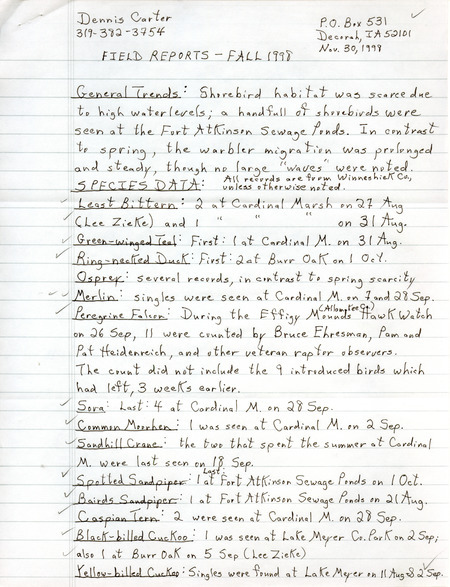 Dennis Carter
319-382-3754
P.O. Box 531
Decorah, IA 52101
Nov. 30, 1998
FIELD REPORTS - FALL 1998
General Trends: Shorebird habitat was scarce due
to high water levels; a handfull of shorebirds were
seen at the Fort Atkinson Sewage Ponds. In contrast
to spring, the warbler migration was prolonged
and steady, though no large "waves" were noted.
SPECIES DATA: All records are from Winneshiek Co,
unless otherwise noted.
Least Bittern: 2 at Cardinal Marsh on 27 Aug
(Lee Zieke) and 1 " " " on 31 Aug.
Green-winged Teal: First: 1 at Cardinal M. on 31 Aug.
Ring-necked Duck: First: 2 at Burr Oak on 1 Oct.
Osprey: several records, in contrast to spring scarcity
Merlin: singles were seen at Cardinal M. on 7 and 28 Sep.
Peregrine Falcon: During the Effigy Mounds (Allamakee Co) Hawk Watch
on 26 Sep, 11 were counted by Bruce Ehresman, Pam and
Pat Heidenreich, and other veteran raptor observers.
The count did not include the 9 introduced birds which
had left, 3 weeks earlier.
Sora: Last: 4 at Cardinal M. on 28 Sep.
Common Moorhen: 1 was seen at Cardinal M. on 2 Sep.
Sandhill Crane: the two that spent the summer at Cardinal
M. were last seen on 18 Sep.
Spotted Sandpiper: Last: 1 at Fort Atkinson Sewage Ponds on 1 Oct.
Bairds Sandpiper: 1 at Fort Atkinson Sewage Ponds on 21 Aug.
Caspian Tern: 2 were seen at Cardinal M. on 28 Sep.
Black-billed Cuckoo: 1 was seen at Lake Meyer Co. Park on 2 Sep;
also 1 at Burr Oak on 5 Sep (Lee Zieke)
Yellow-billed Cuckoo: Singles were found at Lake Meyer on 11 Aug & 2 Sep.